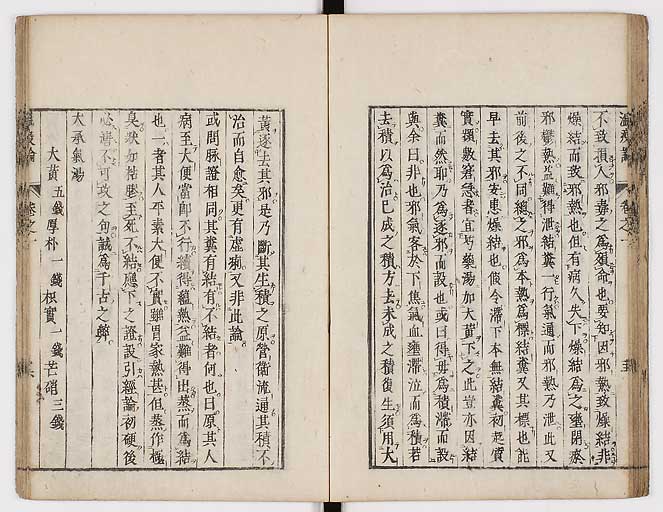 不致損人邪毒之為殞命也要知因邪熱致燥結非
燥結而致邪熱也但有病久失下燥結為之壅閉瘀
邪鬱熱益難得泄結糞一行氣通而邪熱乃泄此又
前後之不同總之邪為本熱為標結糞又其標也能
早去其邪安患燥結也假令滯下本無結糞初起質
實頻數窘急者宜芍藥湯加大黃下之此豈亦因結
糞而然耶乃為逐邪而設也或曰得毋為積滯而設
與余曰非也邪氣客於下焦氣血壅滯泣而為積若
去積以為治已成之積方去未成之積復生須用大
黃逐去其邪是乃斷其生積之原營衛流通其積不
治而自愈矣更有虛痢又非此論
或問脉證相同其糞有結有不結者何也曰原其人
病至大便當即不行續得蘊熱益難得出蒸而為結
也一者其人平素大便不實雖胃家熱甚但蒸作極
臭狀如粘膠至死不結應下之證設引經論初硬後
必溏不可攻之句誠為千古之弊
大承氣湯
大黃 五錢 厚朴 一錢 枳實 一錢 芒硝 三錢